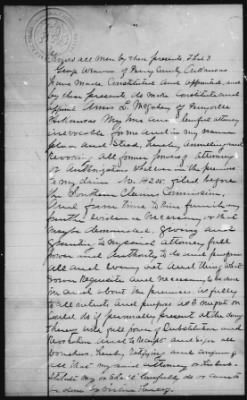 Know all Men by these presents That I
George Warren of Perry County Arkansas
have Made Constituted and appointed and
by these presents do Make Constitute and
appoint L. McGahey of Perryville
Arkansas My true and lawful attorney
irrevocable for me and in my name
place and Stead, hereby annulling and
revoking all former powers of attorney
or authorization whatever in the premises
to my claim No. filed before
the Southern Claims Commission
and from time to time furnish any
further evidence necessary or that
may be demanded, giving and
granting to my said attorney full
power and authority to do and perform
all and every act and thing whatsoever
requisite and necessary to be done
in and about the premises as fully
to all intents and purposes as I might or
could do if personally present at the doing
thereof with full power of Substitution and
revocation and to receipt and sign all
vouchers, hereby ratifying and confirming
all that my said attorney or his substitute
may or shall lawfully do or cause to
be done by virtue hereof.